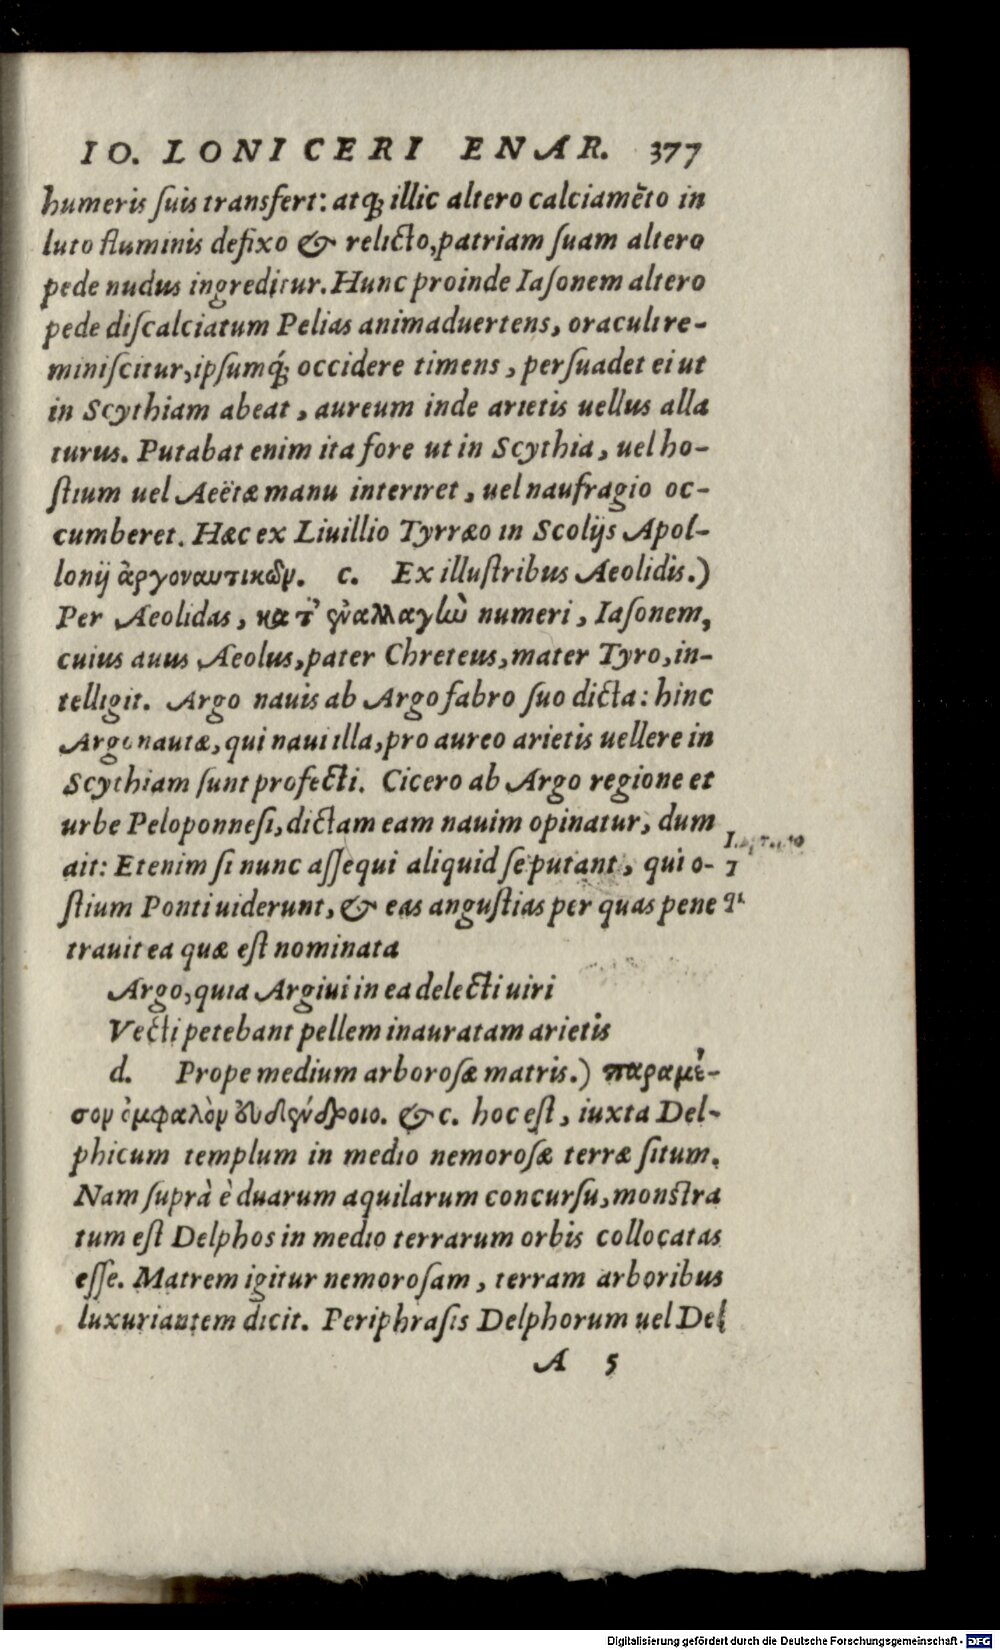 IO. LONICERI ENAR. 377
humeris ſuis transfert: atq; illic altero calciamēto in
luto fluminis defixo & relicto, patriam ſuam altero
pede nudus ingreditur. Hunc proinde Iaſonem altero
pede diſcalciatum Pelias animaduertens, oraculi re-
miniſcitur, ipſumq́; occidere timens, perſuadet ei ut
in Scythiam abeat, aureum inde arietis uellus alla
turus. Putabat enim ita fore ut in Scythia, uel ho-
ſtium uel Aeëtæ manu interiret, uel naufragio oc-
cumberet. Hæc ex Liuillio Tyrræo in Scolijs Apol-
lonij ἀργοναυτικῶν. c. Ex illuſtribus Aeolidis.)
Per Aeolidas, κατ' ἐναλλαγὼ numeri, Iaſonem,
cuius auus Aeolus, pater Chreteus, mater Tyro, in-
telligit. Argo nauis ab Argo fabro ſuo dicta: hinc
Argonautæ, qui naui illa, pro aureo arietis uellere in
Scythiam ſunt profecti. Cicero ab Argo regione et
urbe Peloponneſi, dictam eam nauim opinatur, dum
ait: Etenim ſi nunc aſſequi aliquid ſe putant, qui o-
ſtium Ponti uiderunt, & eas anguſtias per quas pene
trauit ea quæ eſt nominata
Argo, quia Argiui in ea delecti uiri
Vecti petebant pellem inauratam arietis
d. Prope medium arboroſæ matris.) παραμέ-
σον ὀμφαλὸν ἐυδένδροιο. & c. hoc eſt, iuxta Del-
phicum templum in medio nemoroſæ terræ ſitum.
Nam ſuprà è duarum aquilarum concurſu, monstra
tum eſt Delphos in medio terrarum orbis collocatas
eſſe. Matrem igitur nemoroſam, terram arboribus
luxuriantem dicit. Periphraſis Delphorum uel Del
A 5
Digitalisierung gefördert durch die Deutsche Forschungsgemeinschaft - DFG